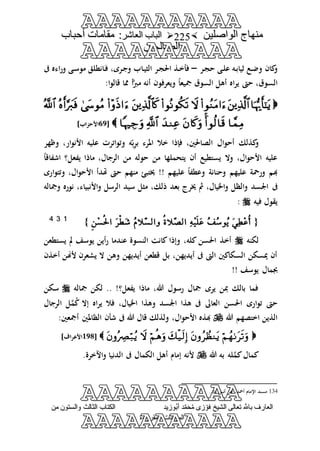 منهاج الواصلين 225 الباب العاشر: مقامات أحباب
وكان وضع ثيابه على حجر – فأخذ الحجر الثياب وجرى، فانطلق موسى وراءه فى
السوق، حتى يراه أهل السوق جميعاً ويعرفون أنه مبرأ مما قالوا:
﴿ يَٰٓأَيُّهَا ٱلَّذِينَ ءَامَنُوا۟ لَا تَكُونُوا۟ كَٱلَّذِينَ ءَاذَوْا۟ مُوسَىٰ فَبَرَّأَهُ ٱللَّهُ
مِمَّا قَالُوا۟ ۚ وَكَانَ عِندَ ٱللَّهِ وَجِيهًا ﴾ [69الأحزاب]
وكذلك أحوال الصالحين، فإذا خلا المرء بربّه وتواترت عليه الأنوار، وظهر
عليه الأحوال، ولا يستطيع أن يتحملها من حوله من الرجال، ماذا يفعل؟ اشفاقاً
بهم ورحمة عليهم وحنانة وعطفاً عليهم !! يختبئ منهم حتى تهدأ الأحوال، وتتوارى
فى الجسد والظل والخيال، ثم يخرج بعد ذلك، مثل سيد الرسل والأنبياء، نوره وجماله
يقول فيه :
{ أُعْطِيَ يُوسُفُ عَلَيْهِ الصَّلاةُ والسَّلامُ شَطْرَ الْحُسْنِ } 134
لكنه أخذ الحسن كله. وإذا كانت النسوة عندما رأين يوسف لم يستطعن
أن يمسكن السكاكين التى فى أيديهن، بل قطعن أيديهن وهن لا يشعرن لأنهن أخذن
بجمال يوسف !!
فما بالك بمن يرى جمال رسول الله، ماذا يفعل؟! .. لكن جماله سكن
حتى توارى الحسن العالى فى هذا الجسد وهذا الخيال، فلا يراه إلا كُمَّل الرجال
الذين اختصهم الله بهذه الأحوال، ولذلك قال الله فى شأن الظالمين أجمعين:
﴿ وَتَرَىٰهُمْ يَنظُرُونَ إِلَيْكَ وَهُمْ لَا يُبْصِرُونَ ﴾ [198الأعراف]
كمال كمّله به الله لأنه إمام أهل الكمال فى الدنيا والآخرة.
العارف بالله تعالى الشيخ فوزى محمد أبوزيد الكتاب الثالث والستون من